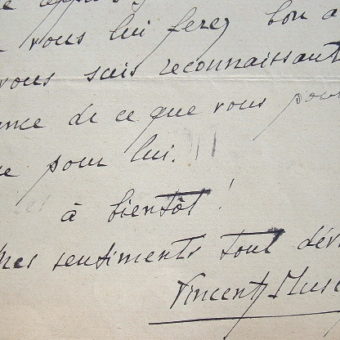 vous lui ferez bon a
vous suis reconnaissant
ance de ce que vous pour
pour lui.
à bientôt !
mes sentiments tout dév
Vincent